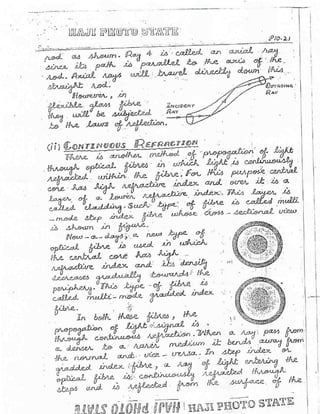 HAJI PHOTO STATE
P10-21
rod as shown. Ray 4 is called an axial ray
since its path is parallel to the axis of the
rod. Axial rays will travel directly down this
straight rod.
However, in
flexible glass fibre
they will be subjected
to the laws of reflection.
INCIDENT
RAY
OUTGOING
RAY
(ii) CONTINUOUS REFRACTION
There is another method of propagation of light
through optical fibres in which light is continuously
refracted within the fibre. For this purpose central
core has high refractive index and over it is a
layer of a lower refractive index. This layer is
called cladding. Such type of fibre is called multi
-mode step index fibre whose cross-sectional view
is shown in figure.
Now-a-days, a new type of
optical fibre is used in which
the central core has high
refractive index and its density
decreases gradually towards the
periphery. This type of fibre is
called multi-mode graded index
fibre.
In both these fibres, the
propagation of light signal is
through continuous refraction. When a ray pass from
a denser to a rarer medium it bends away from
the normal and vice-versa. In step index or
gradded index fibre, a ray of light entering the
optical fibre is continuously refracted through
steps and is reflected from the surface of the
HAJI PHOTO STATE
HAJI PHOTO STATE